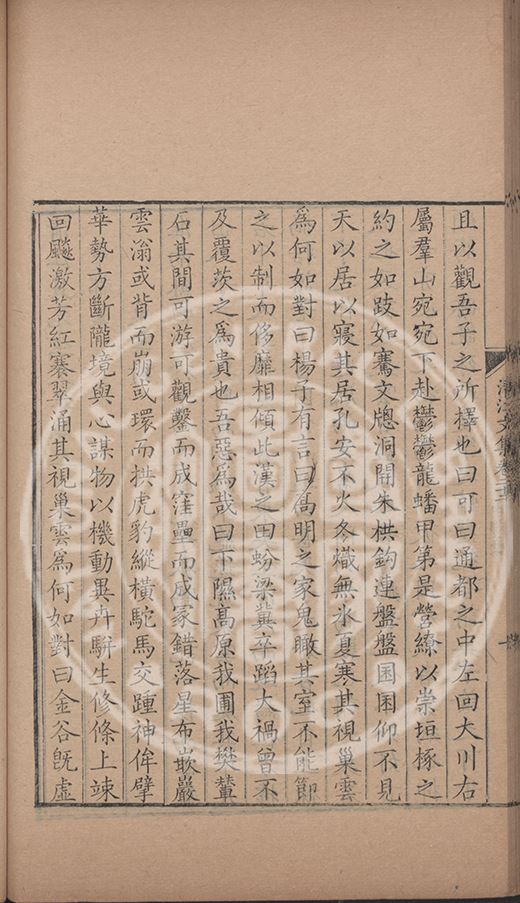 且以觀吾子之所擇也曰可曰通都之中左回大川右
屬羣山宛宛下赴鬱鬱龍蟠甲第是營繚以崇垣椓之
約之如跂如騫文牕洞開朱栱鈎連盤盤囷囷仰不見
天以居以寢其居孔安不火冬熾無氷夏寒其視巢雲
爲何如對曰楊子有言曰高明之家鬼瞰其室不能節
之以制而侈靡相傾此漢之田蚡梁冀卒蹈大禍曾不
及覆茨之爲貴也吾惡爲哉曰下隰高原我圃我樊輦
石其間可游可觀鑿而成窪壘而成冢錯落星布嵌巖
雲滃或背而崩或環而拱虎豹縱橫駝馬交踵神侔擘
華勢方斷隴境與心謀物以機動異卉駢生修條上竦
回飈激芳紅褰翠涌其視巢雲爲何如對曰金谷旣虛